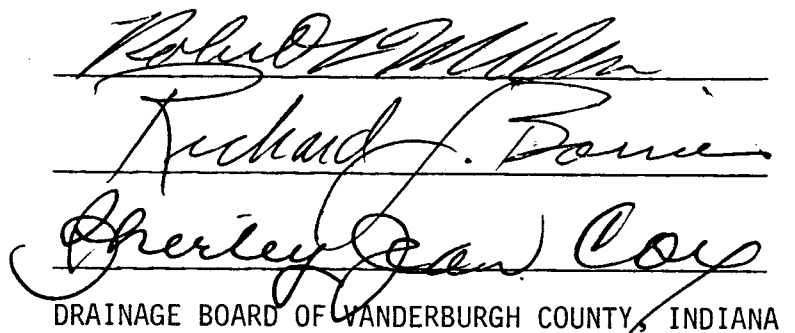 Robert L Willner
Richard J. Borries
Shirley Jean Cox
DRAINAGE BOARD OF VANDERBURGH COUNTY, INDIANA